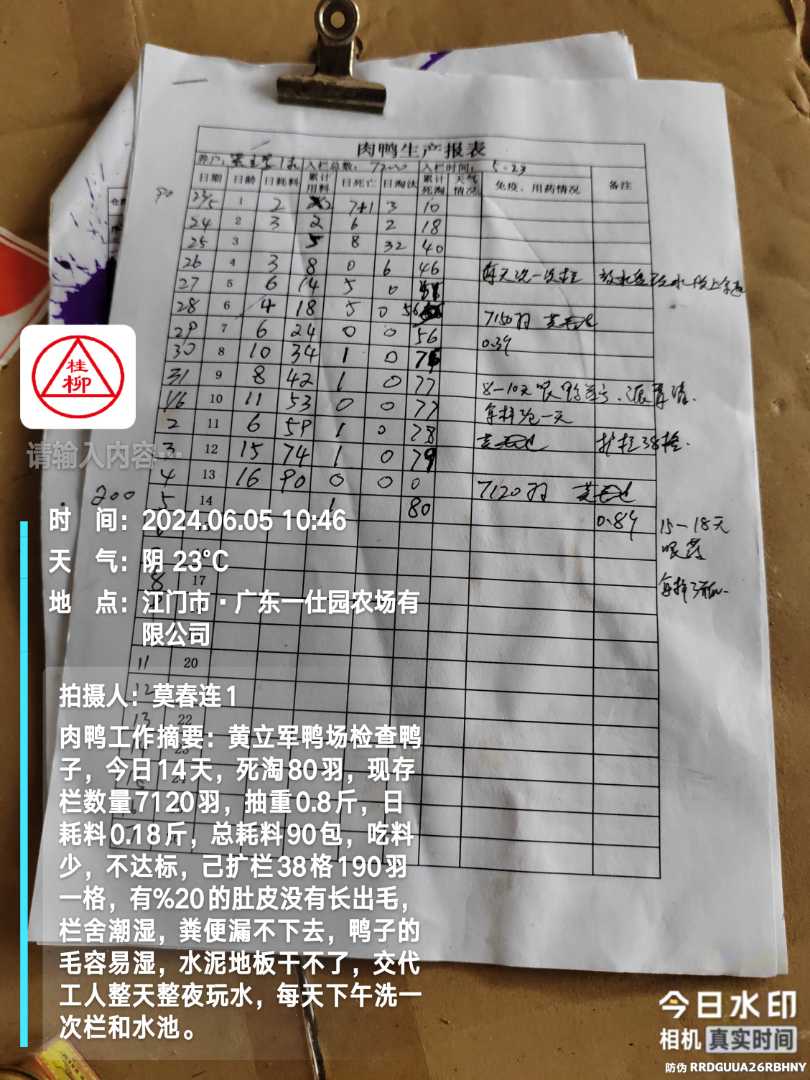 肉鸭生产报表
养户： 入栏总数：7200 入栏时间：5-23
日期 日龄 日耗料 累计用料 日死亡 日淘汰 累计死淘 天气情况 免疫、用药情况 备注
23/5 1 2 2 7+1 3 10
24 2 3 2 6 2 18
25 3 5 8 32 40
26 4 3 8 0 6 46 每天洗一次栏
27 5 6 14 5 0
28 6 4 18 5 0 56 7150羽 莫春连
29 7 6 24 0 0 56 0.39
30 8 10 34 1 0 76
31 9 8 42 1 0 77 8-10天
1/6 10 11 53 0 0 77 每料包一天
2 11 6 59 1 0 78 莫春连 扩栏38格.
3 12 15 74 1 0 79
4 13 16 90 0 0 0 7120羽 莫春连
200
5 14 1 80 0.89 15-18天
17
11 20
12
13 22
桂柳
请输入内容…
时 间：2024.06.05 10:46
天 气：阴 23℃
地 点：江门市·广东一仕园农场有
限公司
拍摄人：莫春连1
肉鸭工作摘要：黄立军鸭场检查鸭
子，今日14天，死淘80羽，现存
栏数量7120羽，抽重0.8斤，日
耗料0.18斤，总耗料90包，吃料
少，不达标，己扩栏38格190羽
一格，有%20的肚皮没有长出毛，
栏舍潮湿，粪便漏不下去，鸭子的
毛容易湿，水泥地板干不了，交代
工人整天整夜玩水，每天下午洗一
次栏和水池。
今日水印
相机 真实时间
防伪 RRDGUUA26RBHNY